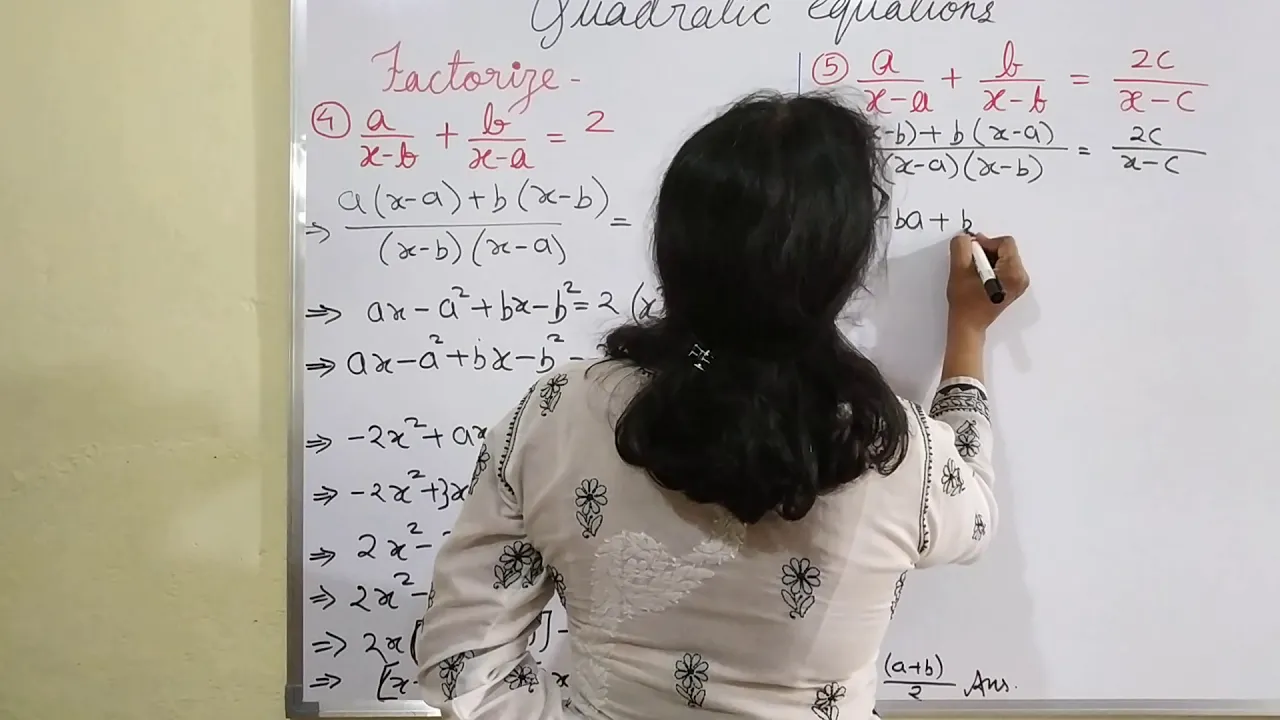 Quadratic equations
Factorize -
④ a/(x-b) + b/(x-a) = 2
⇒ (a(x-a)+b(x-b))/((x-b)(x-a)) =
⇒ ax-a²+bx-b²=2(x
⇒ ax-a²+bx-b²-
⇒ -2x²+ax
⇒ -2x²+3x
⇒ 2x²-
⇒ 2x²-
⇒ 2x[
⇒ [x-
(a+b)/2 Ans.
⑤ a/(x-a) + b/(x-b) = 2c/(x-c)
x-b)+b(x-a)/(x-a)(x-b) = 2c/(x-c)
-ba+b